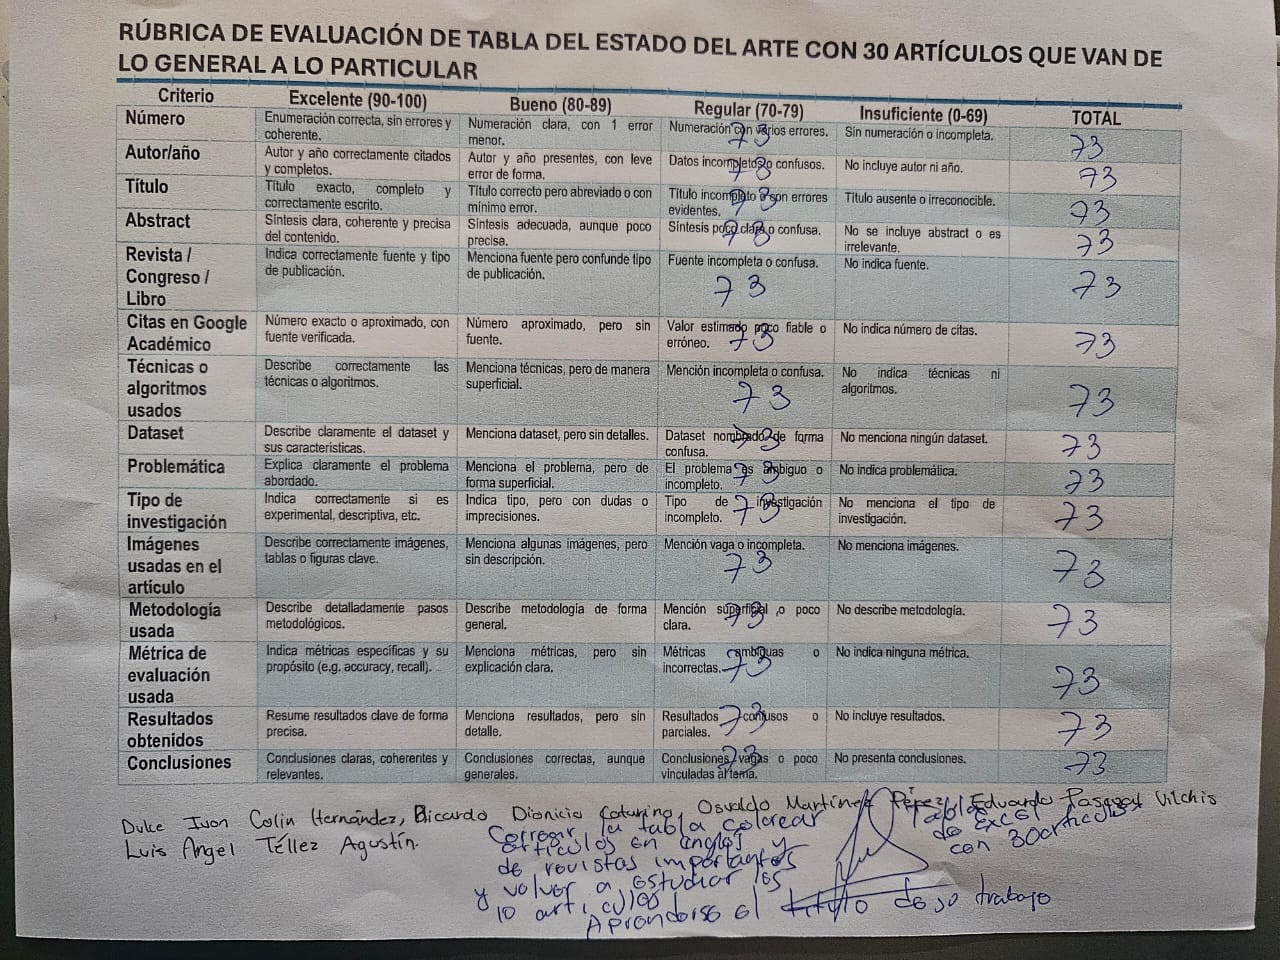 RÚBRICA DE EVALUACIÓN DE TABLA DEL ESTADO DEL ARTE CON 30 ARTÍCULOS QUE VAN DE
LO GENERAL A LO PARTICULAR
Criterio Excelente (90-100) Bueno (80-89) Regular (70-79) Insuficiente (0-69) TOTAL
Número Enumeración correcta, sin errores y coherente. Numeración clara, con 1 error menor. Numeración con varios errores. 73 Sin numeración o incompleta. 73
Autor/año Autor y año correctamente citados y completos. Autor y año presentes, con leve error de forma. Datos incompletos o confusos. 73 No incluye autor ni año. 73
Título Título exacto, completo y correctamente escrito. Título correcto pero abreviado o con mínimo error. Título incompleto o con errores evidentes. 73 Título ausente o irreconocible. 73
Abstract Síntesis clara, coherente y precisa del contenido. Síntesis adecuada, aunque poco precisa. Síntesis poco clara o confusa. 73 No se incluye abstract o es irrelevante. 73
Revista / Congreso / Libro Indica correctamente fuente y tipo de publicación. Menciona fuente pero confunde tipo de publicación. Fuente incompleta o confusa. 73 No indica fuente. 73
Citas en Google Académico Número exacto o aproximado, con fuente verificada. Número aproximado, pero sin fuente. Valor estimado poco fiable o erróneo. 73 No indica número de citas. 73
Técnicas o algoritmos usados Describe correctamente las técnicas o algoritmos. Menciona técnicas, pero de manera superficial. Mención incompleta o confusa. 73 No indica técnicas ni algoritmos. 73
Dataset Describe claramente el dataset y sus características. Menciona dataset, pero sin detalles. Dataset nombrado de forma confusa. 73 No menciona ningún dataset. 73
Problemática Explica claramente el problema abordado. Menciona el problema, pero de forma superficial. El problema es ambiguo o incompleto. 73 No indica problemática. 73
Tipo de investigación Indica correctamente si es experimental, descriptiva, etc. Indica tipo, pero con dudas o imprecisiones. Tipo de investigación incompleto. 73 No menciona el tipo de investigación. 73
Imágenes usadas en el artículo Describe correctamente imágenes, tablas o figuras clave. Menciona algunas imágenes, pero sin descripción. Mención vaga o incompleta. 73 No menciona imágenes. 73
Metodología usada Describe detalladamente pasos metodológicos. Describe metodología de forma general. Mención superficial o poco clara. 73 No describe metodología. 73
Métrica de evaluación usada Indica métricas específicas y su propósito (e.g. accuracy, recall). Menciona métricas, pero sin explicación clara. Métricas ambiguas o incorrectas. 73 No indica ninguna métrica. 73
Resultados obtenidos Resume resultados clave de forma precisa. Menciona resultados, pero sin detalle. Resultados confusos o parciales. 73 No incluye resultados. 73
Conclusiones Conclusiones claras, coherentes y relevantes. Conclusiones correctas, aunque generales. Conclusiones vagas o poco vinculadas al tema. 73 No presenta conclusiones. 73
Dulce Ivon Colin Hernández, Ricardo Dionicio Caturino, Osvaldo Martínez Pérez, Eduardo Pasagal Vilchis
Luis Ángel Téllez Agustín.
Corregir la tabla colorear
artículos en inglés y
de revistas importantes
y volver a estudiar los
10 artículos
Aprenderse el título de su trabajo
Tabla
de excel
con 30 artículos